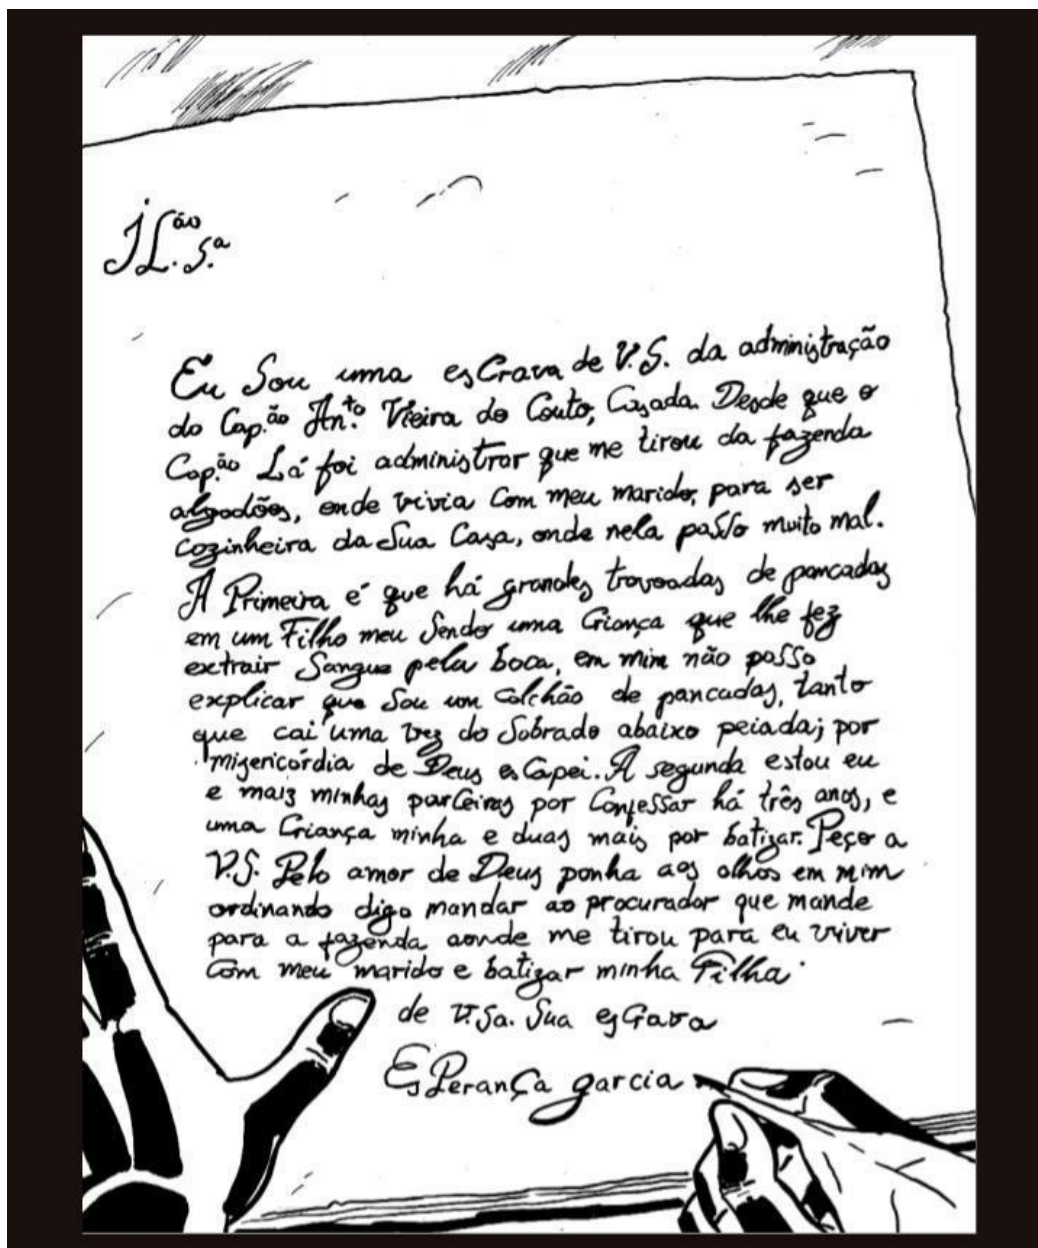 IL.ão S.ª
Eu Sou uma esCrava de V.S. da administração
do Cap.ão An.to Vieira do Couto, Casada. Desde que o
Cap.ão Lá foi administrar que me tirou da fazenda
algodões, onde vivia Com meu marido, para ser
cozinheira da Sua Casa, onde nela paSSo muito mal.
A Primeira é que há grandes trovoadas de pancadas
em um Filho meu Sendo uma Criança que lhe fez
extrair Sangue pela boca, em mim não poSSo
explicar que Sou um Colchão de pancadas, tanto
que cai uma vez do Sobrado abaixo peiada; por
misericórdia de Deus esCapei. A segunda estou eu
e mais minhas parCeiras por ConfeSSar há três anos, e
uma Criança minha e duas mais por batizar. Peço a
V.S. Pelo amor de Deus ponha aos olhos em mim
ordinando digo mandar ao procurador que mande
para a fazenda aonde me tirou para eu viver
Com meu marido e batizar minha Filha
de V.Sa. Sua esCrava
EsPeranÇa garcia